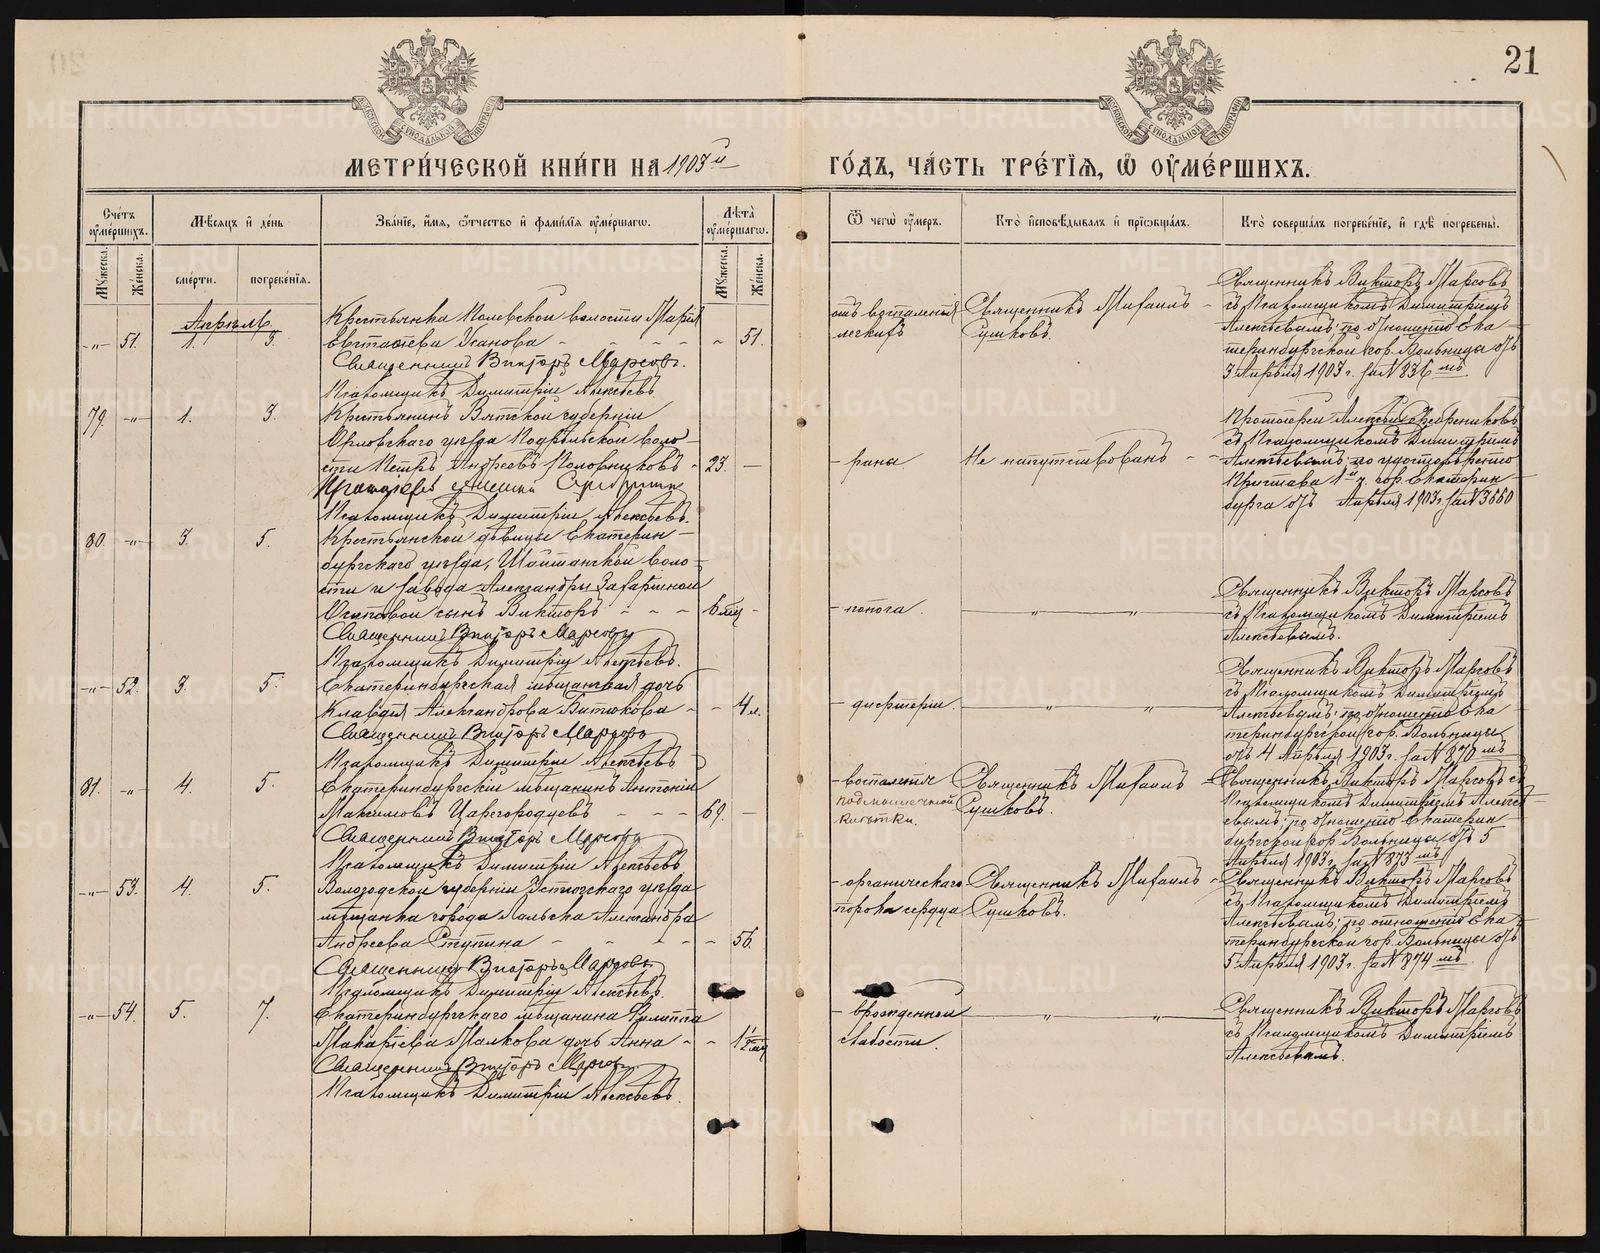 21
МЕТРИ́ЧЕСКОЙ КНИ́ГИ НА 1903й ГО́ДЪ, ЧА́СТЬ ТРЕ́ТІЯ, Ѡ҆ ОУ҆МЕ́РШИХЪ.
Сче́тъ оу҆ме́ршихъ.
Мѣ́сяцъ и҆ де́нь
Зва́нїе, и҆́мя, ѻ҆́тчество и҆ фами́лїя оу҆ме́ршагѡ.
Лѣ́та оу҆ме́ршагѡ.
Ѿ чегѡ̀ оу҆́меръ.
Кто̀ и҆сповѣ́дывалъ и҆ прїѡбща́лъ.
Кто̀ соверша́лъ погребе́нїе, и҆ гдѣ̀ погребены̀.
Му́жеска.
Же́нска.
сме́рти.
погребе́нїя.
Му́жеска.
Же́нска.
Апрѣль
-„- 51. 1. 3.
Крестьянка Полевской волости Марія
Евстафіева Усанова - 51.
Священникъ Викторъ Марсовъ.
Псаломщикъ Димитрій Алексѣевъ
отъ воспаленія
легкихъ
Священникъ Михаилъ
Сушковъ.
Священникъ Викторъ Марсовъ
съ Псаломщикомъ Димитріемъ
Алексѣевымъ; по отношенію Ека-
теринбургской гор. Больницы отъ
3 Апрѣля 1903 г. за № 836 мъ
79. -„- 1. 3.
Крестьянинъ Вятской губерніи
Орловскаго уѣзда Подрѣльской воло-
сти Петръ Андреевъ Половниковъ - 23. -
Псаломщикъ Димитрій Алексѣевъ.
- раны
Не напутствованъ
Протоіерей
съ Псаломщикомъ Димитріемъ
Алексѣевымъ; по удостовѣренію
Пристава 1й ч. гор. Екатерин-
бурга отъ Апрѣля 1903 г. за № 3660
80. -„- 3. 5.
Крестьянской дѣвицы Екатерин-
бургскаго уѣзда, Шайтанской воло-
сти и завода Александры Захаріиной
Осиповой сынъ Викторъ - 6 мц -
Священникъ Викторъ Марсовъ
Псаломщикъ Димитрій Алексѣевъ.
- поноса.
„ „
Священникъ Викторъ Марсовъ
съ Псаломщикомъ Димитріемъ
Алексѣевымъ.
-„- 52. 3. 5.
Екатеринбургская мѣщанская дочь
Клавдія Александрова Битюкова - 4 л.
Священникъ Викторъ Марсовъ
Псаломщикъ Димитрій Алексѣевъ
- дифтеріи.
„ „
Священникъ Викторъ Марсовъ
съ Псаломщикомъ Димитріемъ
Алексѣевымъ; по отношенію Ека
теринбургской гор. Больницы
отъ 4 Апрѣля 1903 г. за № 870 мъ
81. -„- 4. 5.
Екатеринбургскій мѣщанинъ Антоній
Максимовъ Царегородцевъ - 69. -
Священникъ Викторъ Марсовъ
Псаломщикъ Димитрій Алексѣевъ
- воспаленія
подмышечной
клѣтки.
Священникъ Михаилъ
Сушковъ.
Священникъ Викторъ Марсовъ съ
Псаломщикомъ Димитріемъ Алексѣ-
евымъ; по отношенію Екатерин-
бургской гор. Больницы отъ 5
Апрѣля 1903 г. за № 873 мъ
-„- 53. 4. 5.
Вологодской губерніи Устюгскаго уѣзда
мѣщанка города Лальска Александра
Андреева Ступина - 56.
Священникъ Викторъ Марсовъ
Псаломщикъ Димитрій Алексѣевъ.
- органическаго
порока сердца
Священникъ Михаилъ
Сушковъ.
Священникъ Викторъ Марсовъ
съ Псаломщикомъ Димитріемъ
Алексѣевымъ; по отношенію Ека-
теринбургской гор. Больницы отъ
5 Апрѣля 1903 г. за № 874 мъ.
-„- 54. 5. 7.
Екатеринбургскаго мѣщанина Филиппа
Макаріева Малкова дочь Анна - 1½ мц
Священникъ Викторъ Марсовъ
Псаломщикъ Димитрій Алексѣевъ.
- врожденной
слабости.
„ „
Священникъ Викторъ Марсовъ
съ Псаломщикомъ Димитріемъ
Алексѣевымъ.
METRIKI.GASO-URAL.RU